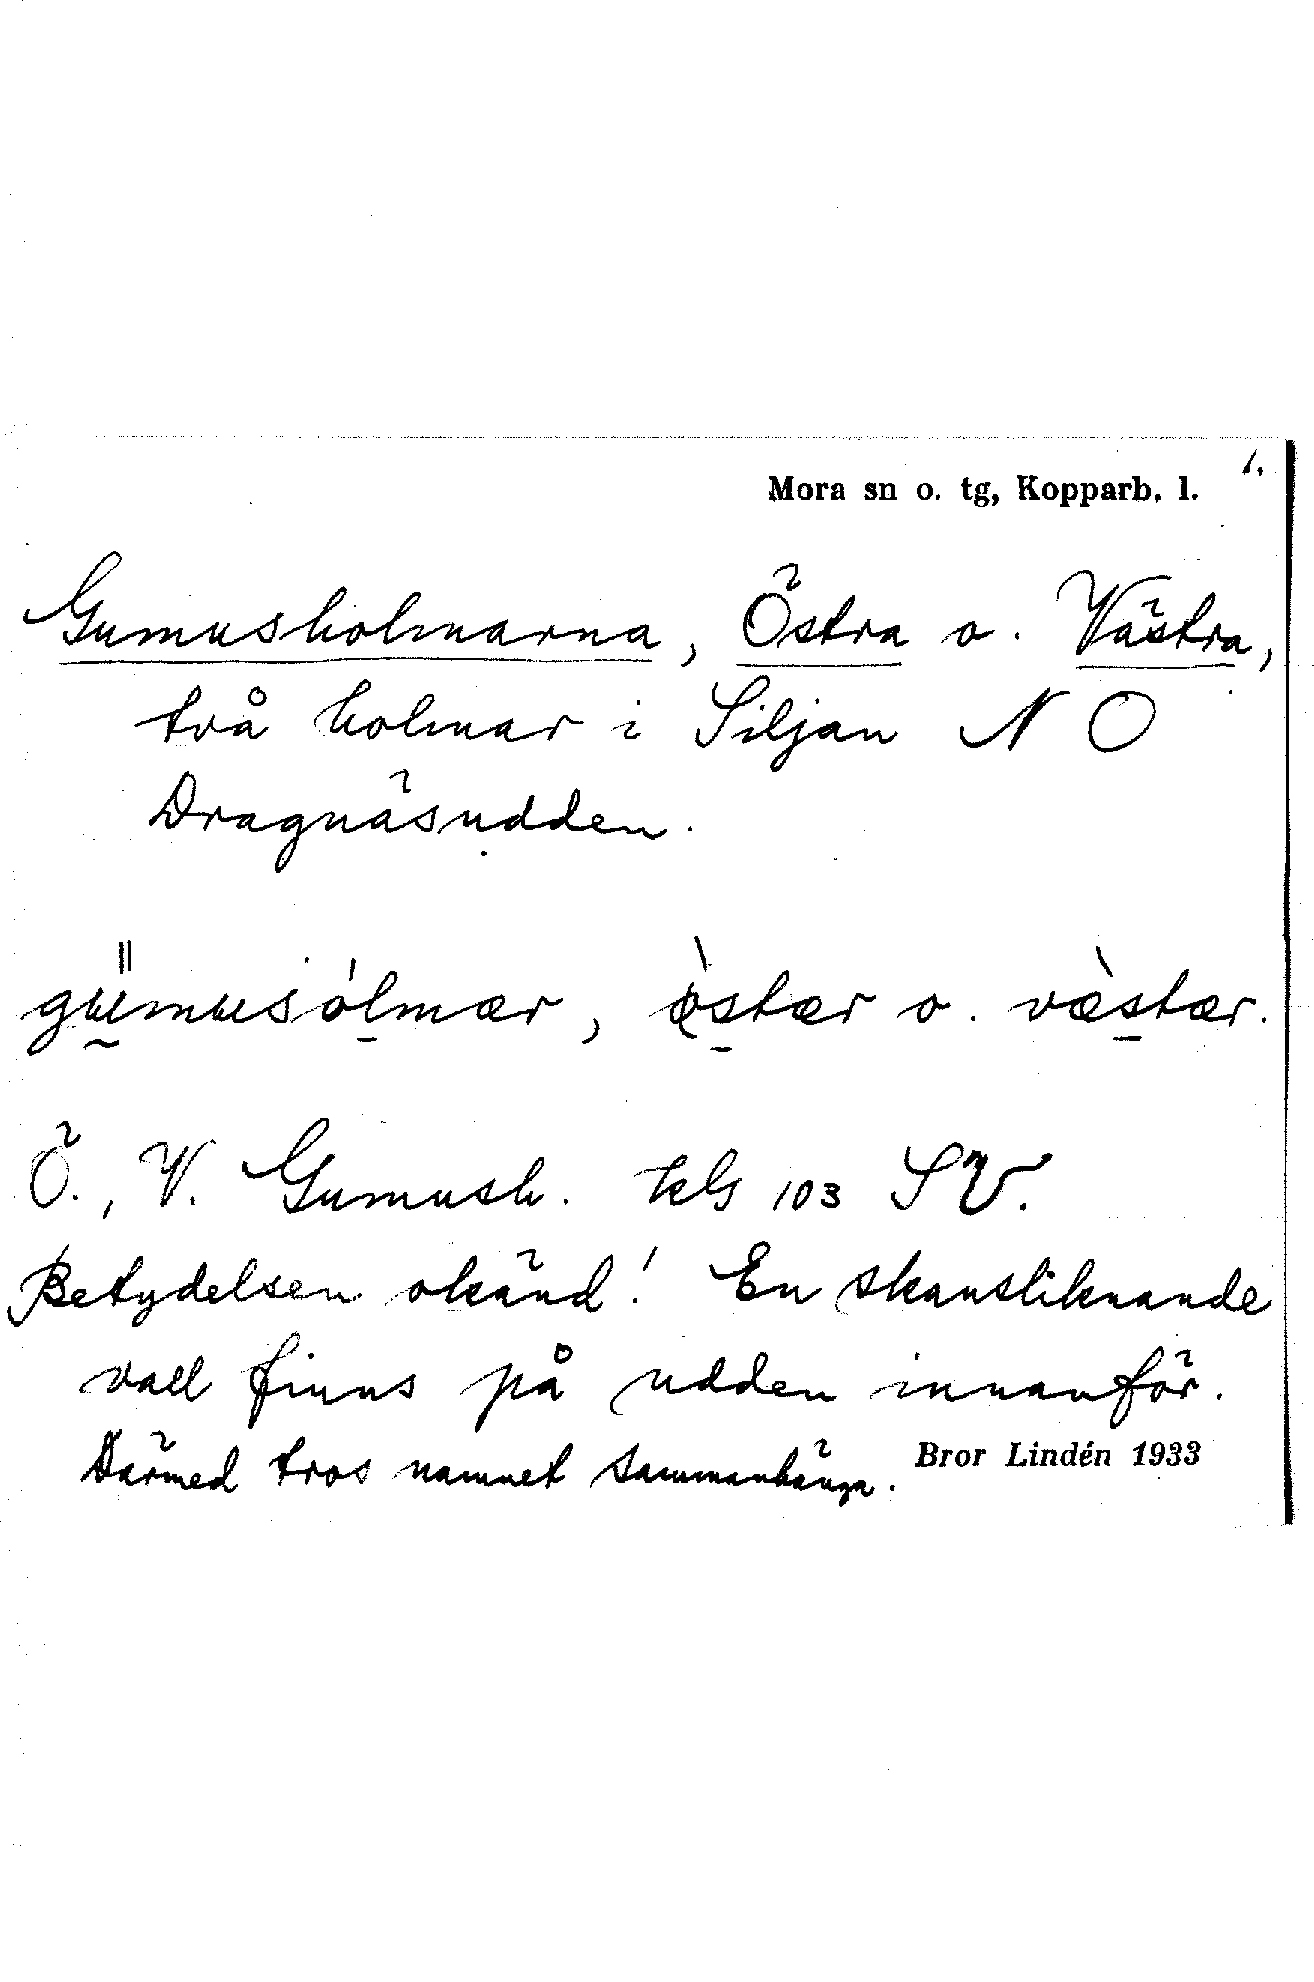 1.
Mora sn o. tg, Kopparb. l.
Gumusholmarna, Östra o. Västra,
två holmar i Siljan N O
Dragnäsudden.
gumusolmær, östær o. væstær.
Ö., V. Gumush. kbl 103 SV.
Betydelsen okänd! En skansliknande
vall finns på udden innanför.
Därmed tros namnet sammanhänga.
Bror Lindén 1933